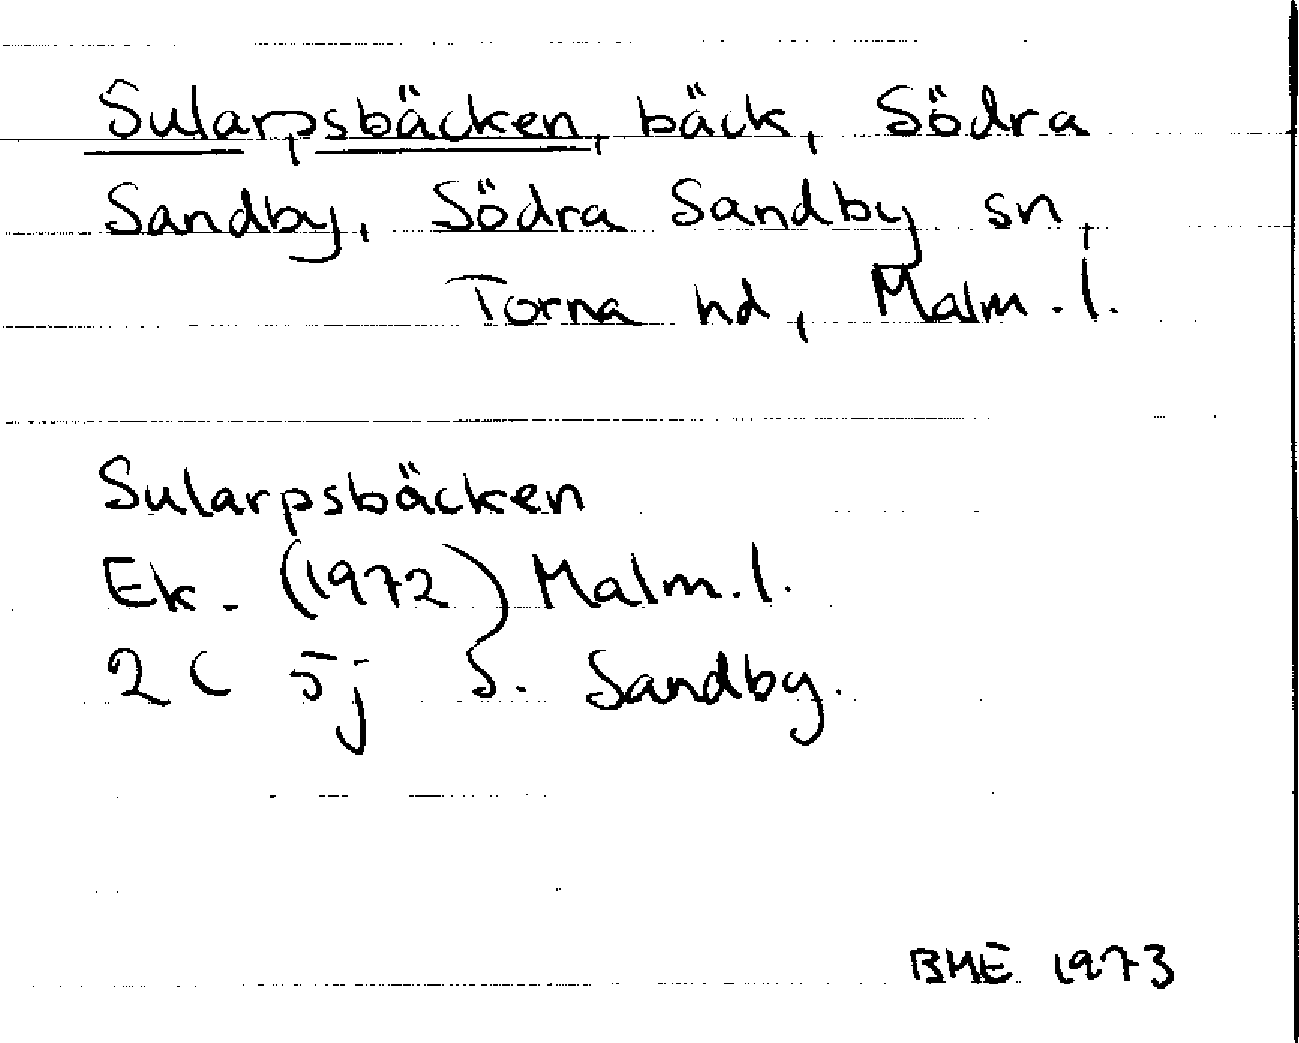 Sularpsbäcken, bäck, Södra
Sandby, Södra Sandby sn,
Torna hd, Malm. l.
Sularpsbäcken
Ek. (1972) Malm. l.
2C 5j S. Sandby.
BME 1973